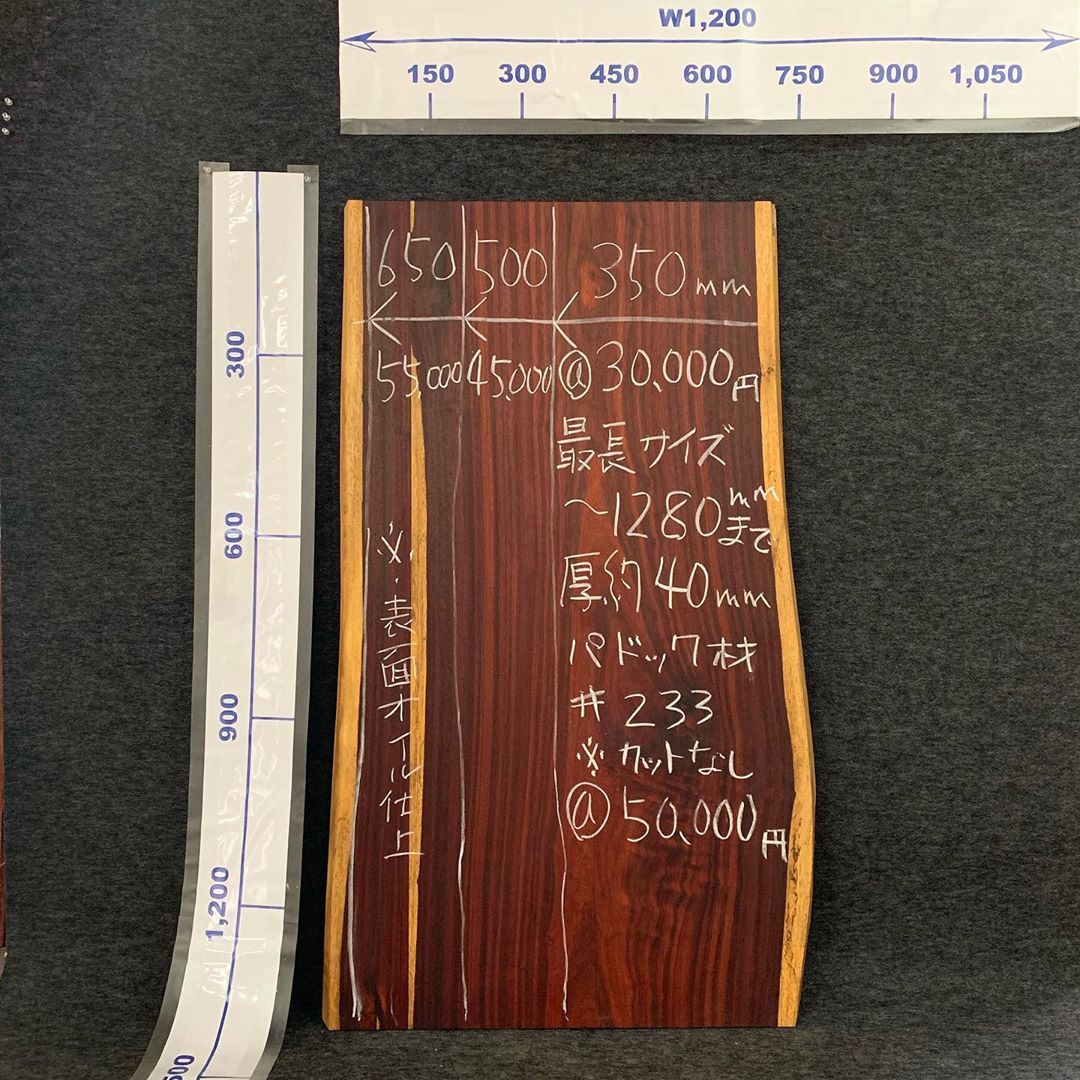 W1,200
150 300 450 600 750 900 1,050
300
600
900
1,200
650 500 350mm
55,000 45,000 @30,000円
最長サイズ
〜1280mmまで
厚約40mm
パドック材
# 233
※カットなし
@50,000円
※・表面オイル仕上